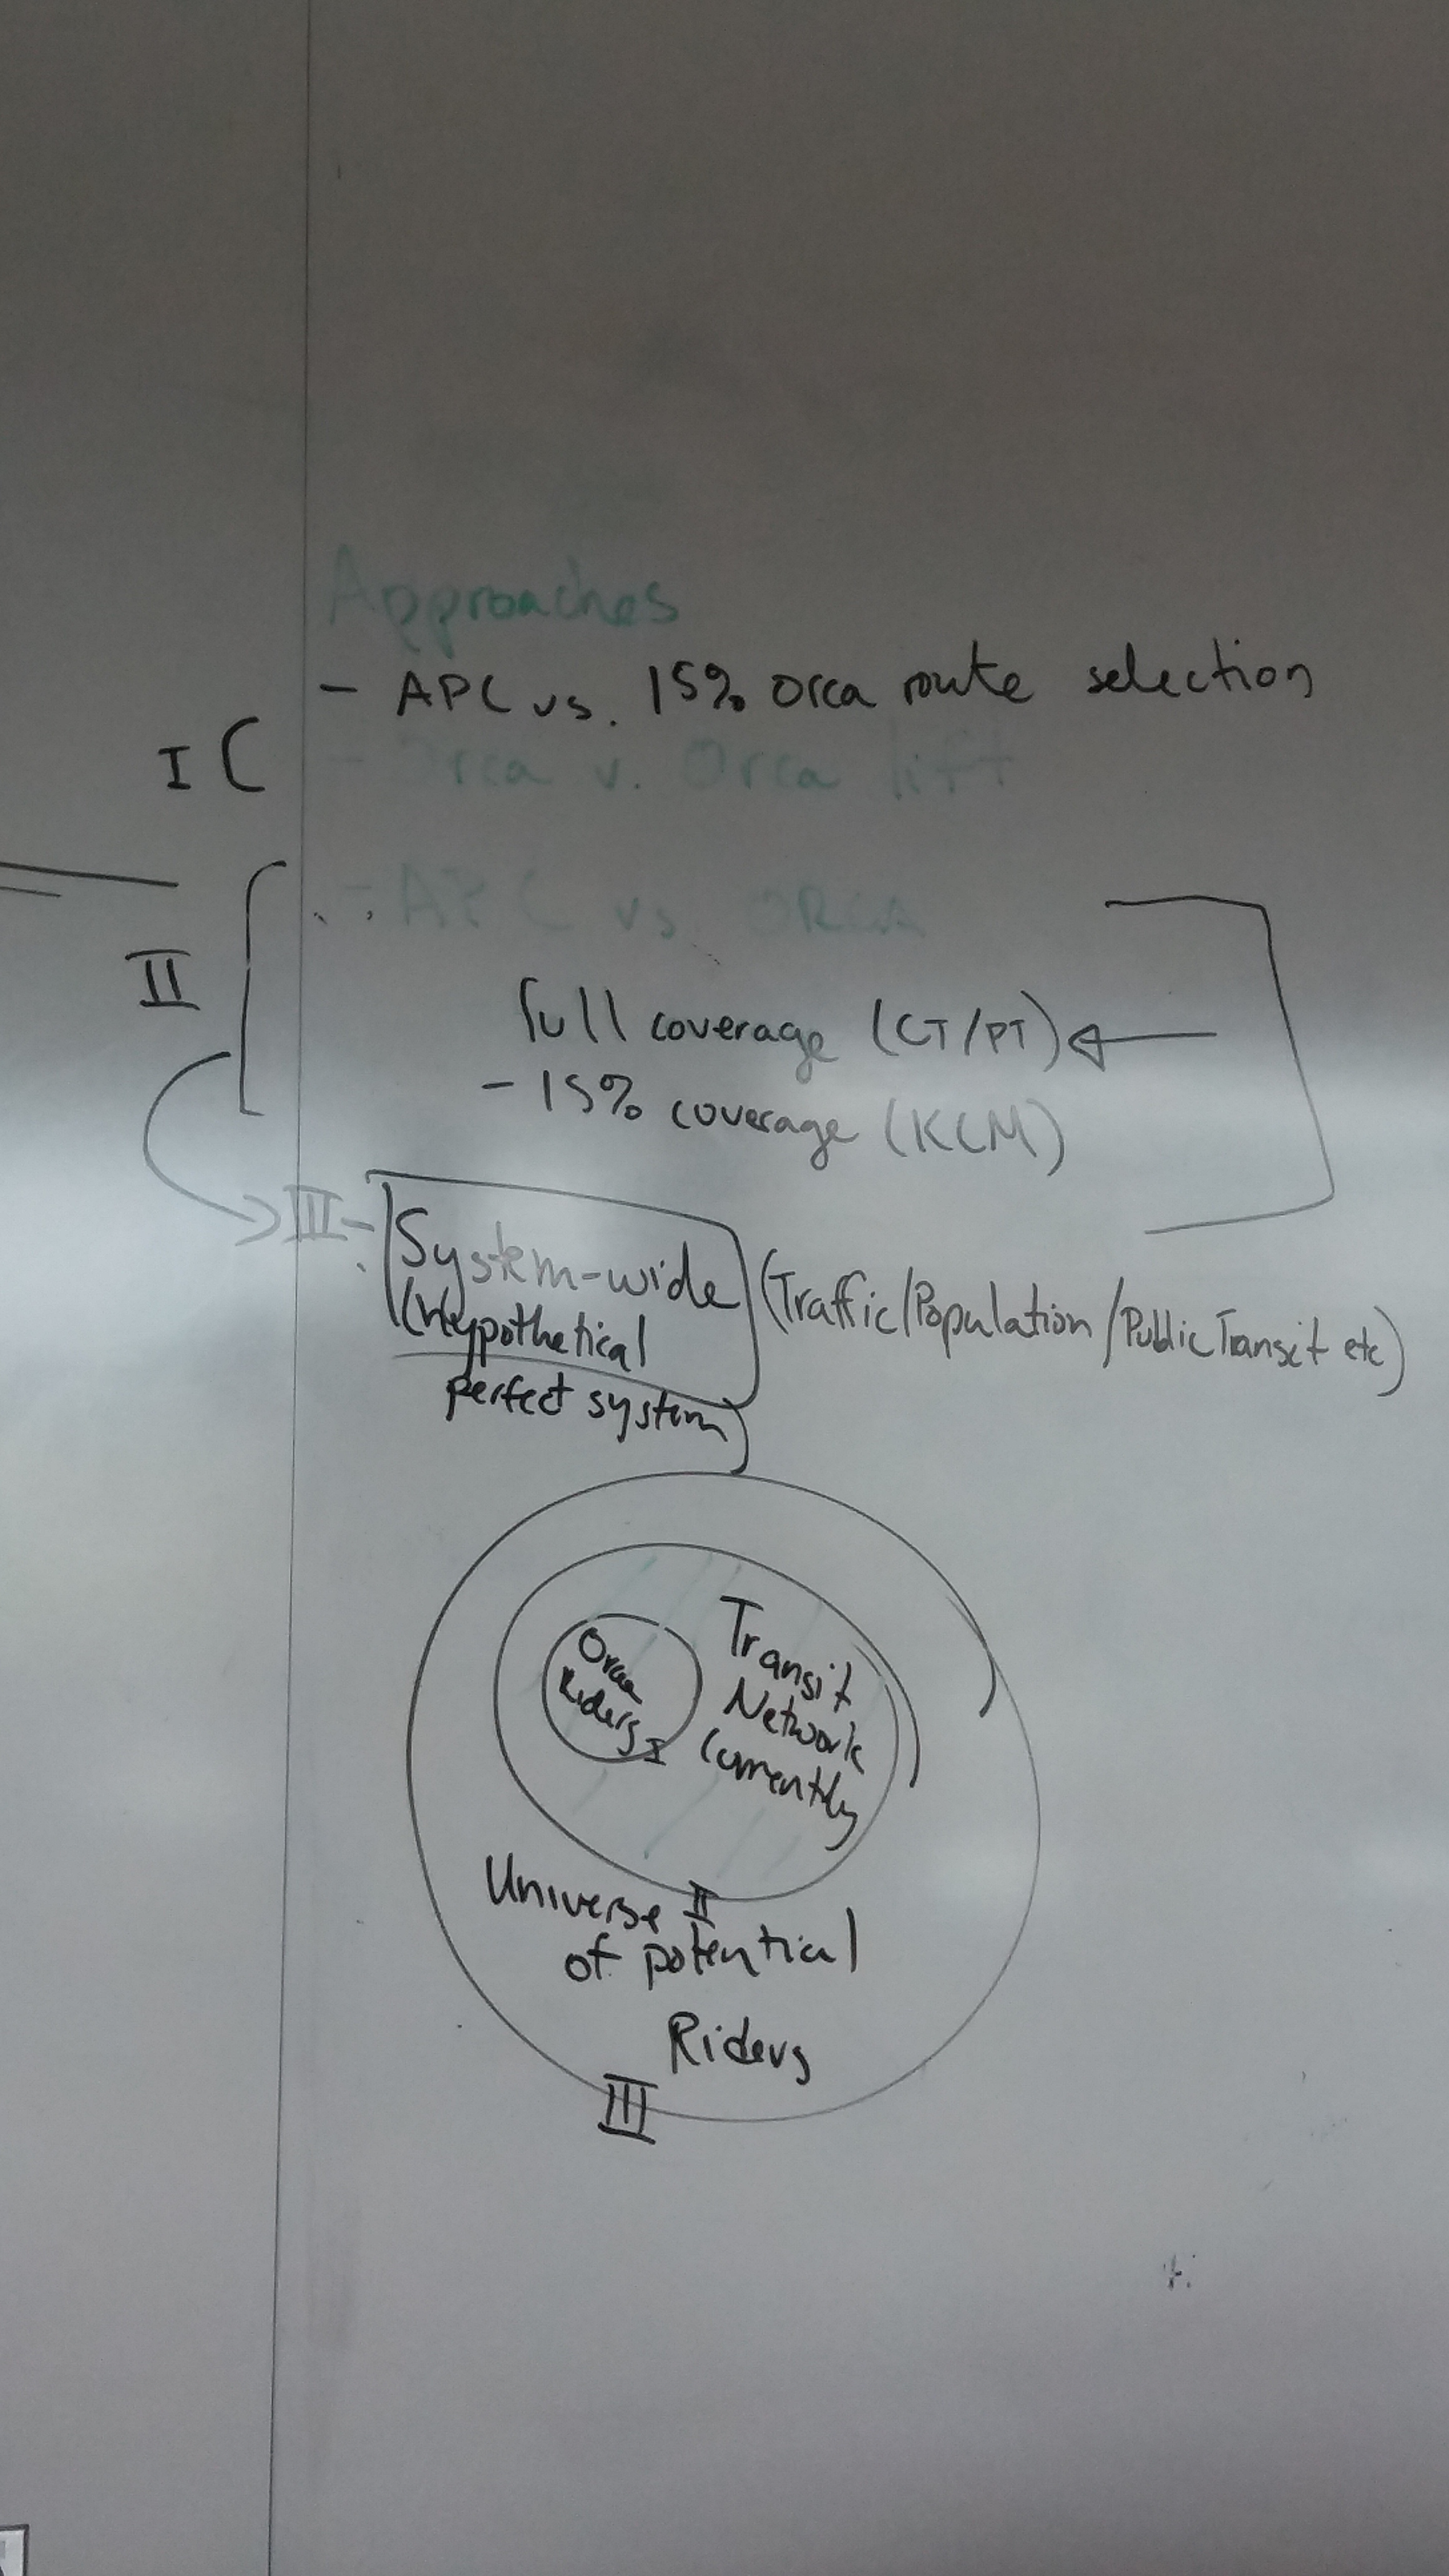 Approaches
- APC vs. 15% Orca route selection
I
- Orca v. Orca lift
- APC vs ORCA
II
full coverage (CT/PT)
- 15% coverage (KCM)
III - System-wide (Traffic/Population/Public Transit etc)
(hypothetical
perfect system)
Orca
Riders
I
Transit
Network
Currently
II
Universe
of potential
Riders
III